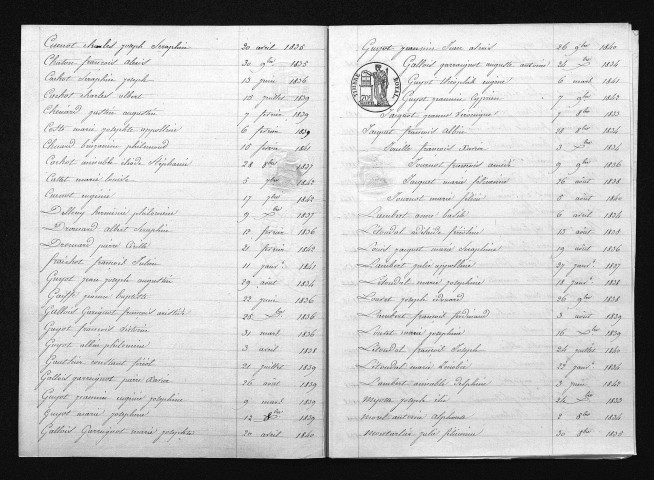 Cuenot charles joseph Seraphin 20 avril 1836
Chatelu francois alexis 30 9bre 1835
Cachot Seraphin joseph 13 juin 1836
Cachot charles albert 18 juillet 1839
Chenard justin augustin 7 fevrier 1839
Coste marie josephte appolline 6 fevrier 1839
Chenard benjamin philemond 18 fevrier 1841
Cachot aimable elvide Stephanie 28 8bre 1837
Cattet marie louise 5 9bre 1842
Cuenot eugénie 17 9bre 1842
Delloy herminie philomène 9 Xbre 1837
Drouhard albert Seraphin 12 fevrier 1836
Drouhard pierre 21 fevrier 1842
francois Julien 11 janvr 1841
Guyot jean joseph augustin 29 aout 1834
jeanne baptiste 22 juin 1836
Gallois Garrignot francois aristide 28 Xbre 1836
Guyot francois 31 mars 1836
Guyot albin philomène 3 avril 1838
Gauthier constant fereol 21 juillet 1839
Gallois garreignot pierre xavier 26 aout 1839
Guyot jeannin eugénie josephine 9 mars 1839
Guyot marie josephine 12 8bre 1839
Gallois Garrignot marie josephte 20 avril 1840
Guyot jeannin Luce alexis 26 9bre 1840
TIMBRE ROYAL
Gallois garreignot auguste antoine 24 Xbre 1834
Guyot Theophile eugène 6 mars 1841
Guyot jeannin Cyprien 7 9bre 1842
Jacquet jeanne Veronique 7 8bre 1833
Jacquet francois Albin 18 8bre 1834
Jouille francois Xavier 3 Xbre 1834
Journot francois aimé 9 9bre 1836
Jacquet marie 26 aout 1838
Journot marie 5 aout 1840
Lambert anne 6 avril 1834
Létondal adelaide 13 aout 1834
Louis jacquet marie Seraphine 19 aout 1836
Lambert julie appolline 27 janvr 1837
Létondal marie josephine 18 janvr 1838
Loutet joseph edouard 26 9bre 1838
Lambert francois ferdinand 3 aout 1839
Loutet marie josephine 16 Xbre 1839
Létondal francois Joseph 24 juillet 1840
Létondal marie 23 janvr 1834
Lambert aimable delphine 3 juin 1842
joseph élie 24 Xbre 1833
mont antoine alphonse 2 8bre 1834
julie 30 8bre 1834